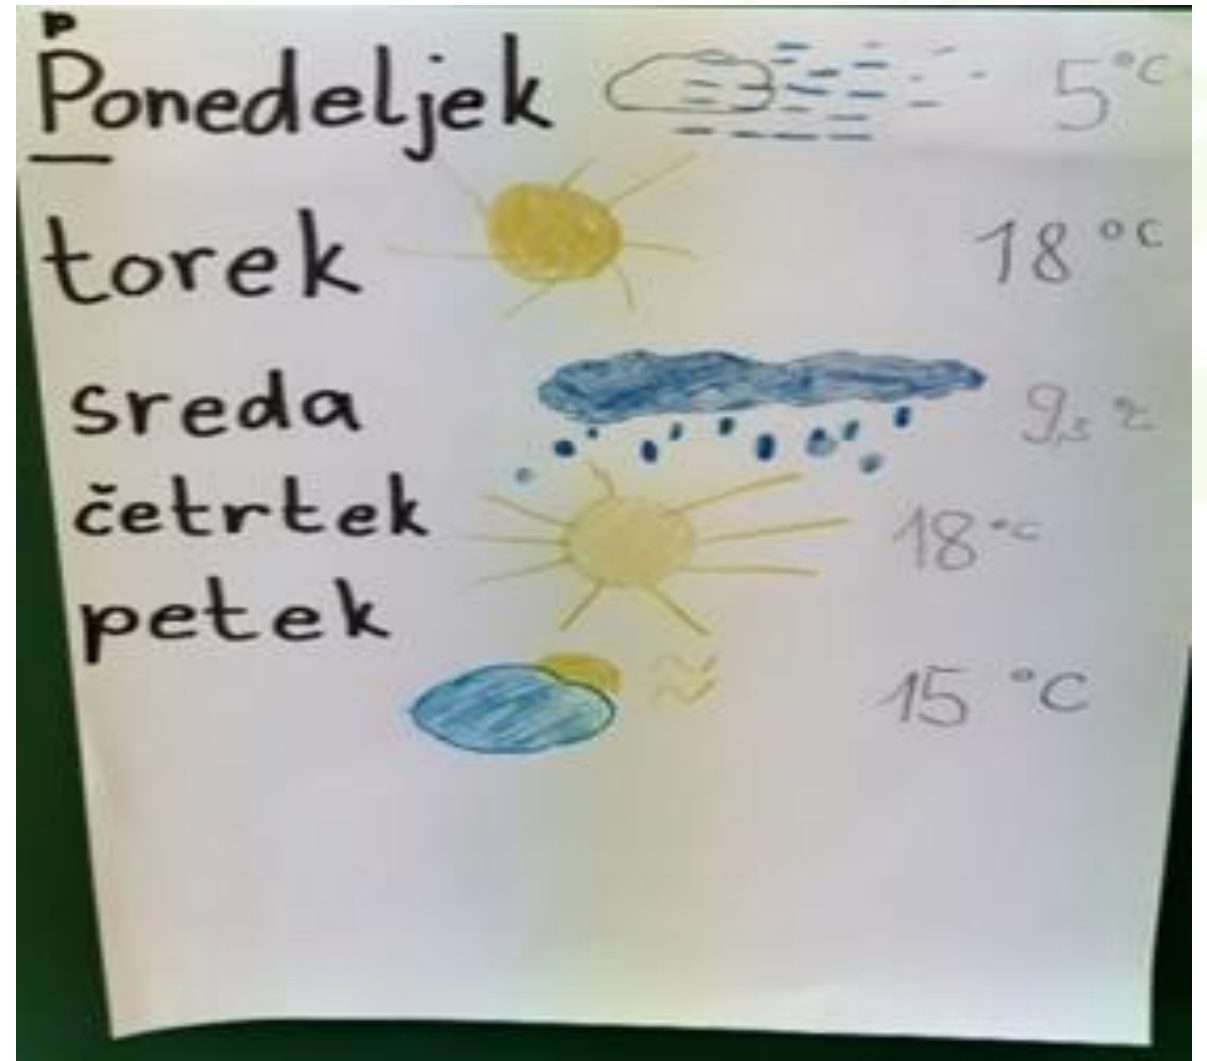 p
Ponedeljek 5°C
torek 18°C
sreda
četrtek 18°C
petek
15°C